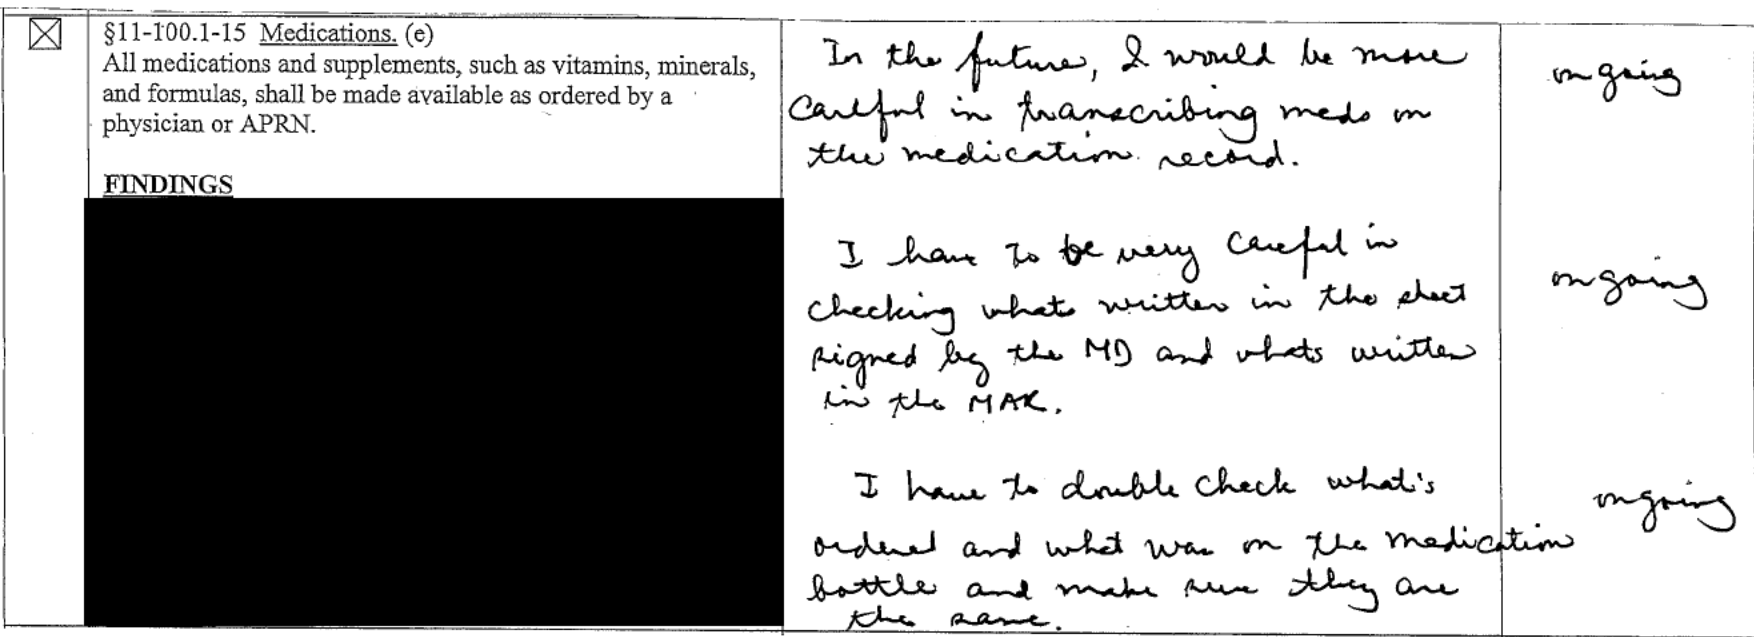 §11-100.1-15 Medications. (e)
All medications and supplements, such as vitamins, minerals,
and formulas, shall be made available as ordered by a
physician or APRN.
FINDINGS
In the future, I would be more
careful in transcribing meds on
the medication record.
ongoing
I have to be very careful in
checking whats written in the sheet
signed by the MD and whats written
in the MAR.
ongoing
I have to double check what's
ordered and what was on the medication
bottle and make sure they are
the same.
ongoing